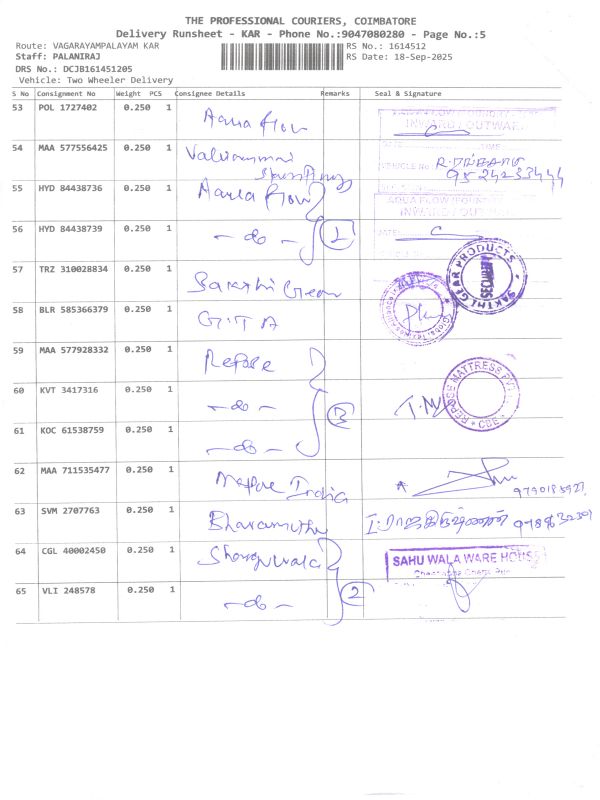 THE PROFESSIONAL COURIERS, COIMBATORE
Delivery Runsheet - KAR - Phone No.:9047080280 - Page No.:5
Route: VAGARAYAMPALAYAM KAR RS No.: 1614512
Staff: PALANIRAJ RS Date: 18-Sep-2025
DRS No.: DCJB161451205
Vehicle: Two Wheeler Delivery
S No Consignment No Weight PCS Consignee Details Remarks Seal & Signature
53 POL 1727402 0.250 1 Aqua flow INWARD / OUTWARD
54 MAA 577556425 0.250 1
55 HYD 84438736 0.250 1 Aqua flow AQUA FLOW FOUNDRY
INWARD / OUTWARD
56 HYD 84438739 0.250 1 - do -
57 TRZ 310028834 0.250 1 Sakthi Gear SAKTHI GEAR PRODUCTS SECURITY
58 BLR 585366379 0.250 1 G.T.A
59 MAA 577928332 0.250 1 Repose REPOSE MATTRESS PVT CBE
60 KVT 3417316 0.250 1 - do - 3
61 KOC 61538759 0.250 1 - do -
62 MAA 711535477 0.250 1 India
63 SVM 2707763 0.250 1
64 CGL 40002450 0.250 1 SAHU WALA WARE HOUSE
65 VLI 248578 0.250 1 - do - 2